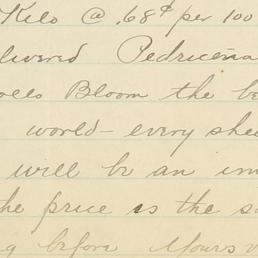 Kilo @ .68¢ per 100
livered Pedriceña
Bloom the be
world - every shee
will be an im
he price is the sa
g before Yours v